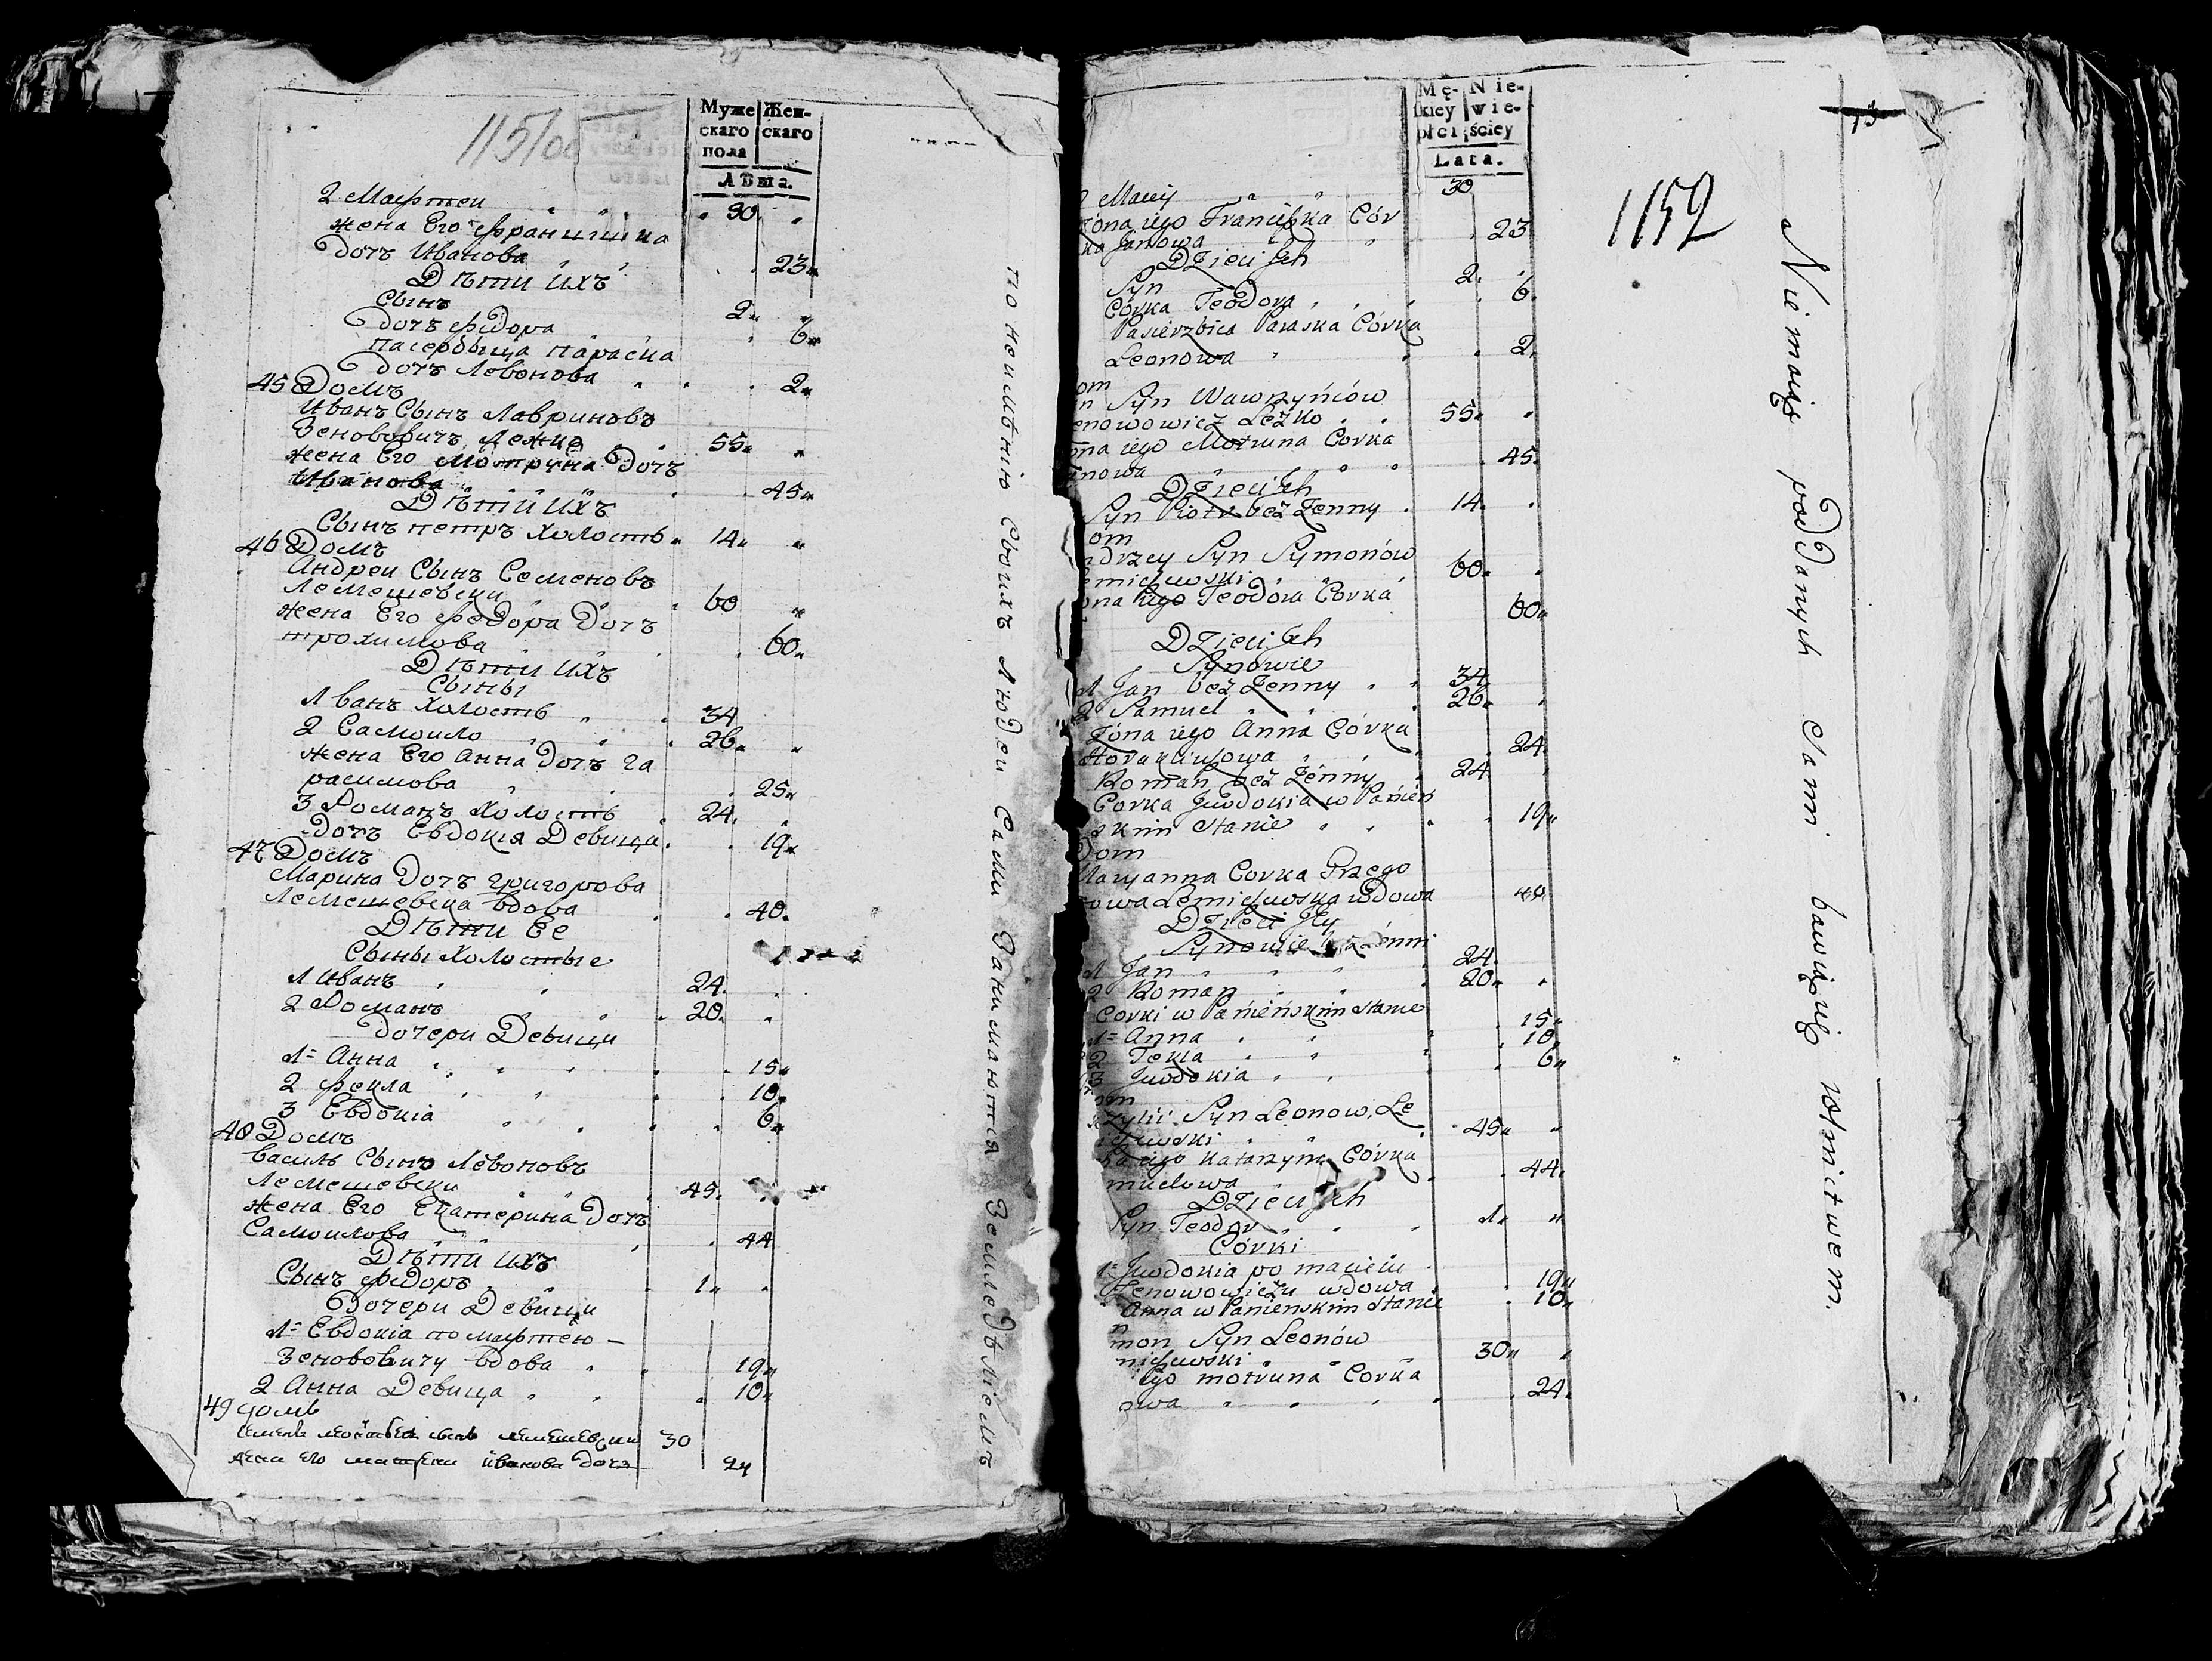 1151об
Муже Жен-
скаго скаго
пола
Лѣта.
2 Мафтеи 30
жена Его Францишка
дотъ Иванова 23
Дѣти ихъ
Сынъ 2
дотъ Федора 6
пасербыца параска
дотъ Левонова 2
45 Домъ
Иванъ Сынъ Лавриновъ
Зенововичъ Лежко 55
жена Его Мотруна дотъ
Иванова 45
Дѣти ихъ
Сынъ петръ холостъ 14
46 Домъ
Андреи Сынъ Семеновъ
Лемешевски 60
жена Его Федора дотъ
трохимова 60
Дѣти ихъ
Сыны
1 Иванъ холостъ 34
2 Самоило 26
жена Его Анна дотъ га
расимова 25
3 Романъ холостъ 24
дотъ Евдокия Девица 19
47 Домъ
Марина дотъ григорова
Лемешевска вдова 40
Дѣти Ее
Сыны холостые
1 Иванъ 24
2 Романъ 20
дочери Девици
1= Анна 15
2 Фекла 10
3 Евдокіа 6
48 Домъ
василь Сынъ Левоновъ
Лемешевски 45
жена Его Екатерина дотъ
Самоилова 44
Дѣти ихъ
Сынъ Федоръ 1
Дочери Девици
1= Евдокіа по мафтею
Зенововичу вдова 19
2 Анна Девица 10
49 домъ
30
жена его иванова дотъ 24
по неимѣнію Своихъ Людеи Сами Занимаются Земледѣліемъ
Mę- Nie-
skiey wie-
płci ściey
Lata.
13
1152
2 Maciy 30
Żona iego Franciszka Cór
ka Janowa 23
Dzieci Jch
Syn 2
Córka Teodora 6
Pasierzbica Paraska Córka
Leonowa 2
om
n Syn Wawrzyńców
enowowicz Leżko 55
ona iego Motruna Corka
anowa 45
Dzieci Jch
Syn Piotr bez Żenny 14
om
ndrzey Syn Symonów
emiszewski 60
ona iego Teodora Córka
60
Dzieci Jch
Synowie
1 Jan bez Żenny 34
2 Samuel 26
Żona iego Anna Córka
24
Roman bez Żenny 24
Corka Jwdokia w Panień
skim stanie 19
Dom
Maryanna Corka Grzego
rowa Lemiszewska wdowa 40
Dzieci Jey
Synowie
1 Jan 24
2 Roman 20
Corki w Panieńskim stanie
1= Anna 15
2 Tekla 10
3 Jwdokia 6
om
zylii Syn Leonow Le
iszewski 45
na iego Katarzyna Córka
muelowa 44
Dzieci Jch
Syn Teodor 1
Córki
1= Jwdokia po macieiu
Zenowowiczu wdowa 19
Anna w Panienskim stanie 10
m
mon Syn Leonów
miszewski 30
iego motruna Corka
owa 24
Nie maiąc poddanych Sami bawią się rolnictwem.